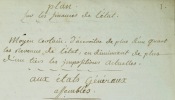 plan
sur les finances de l'état.
Moyen certain d'accroître de plus d'un quart
les revenus de l'état, en diminuant de plus
d'un tiers les impositions actuelles.
aux états Généraux
assemblés.